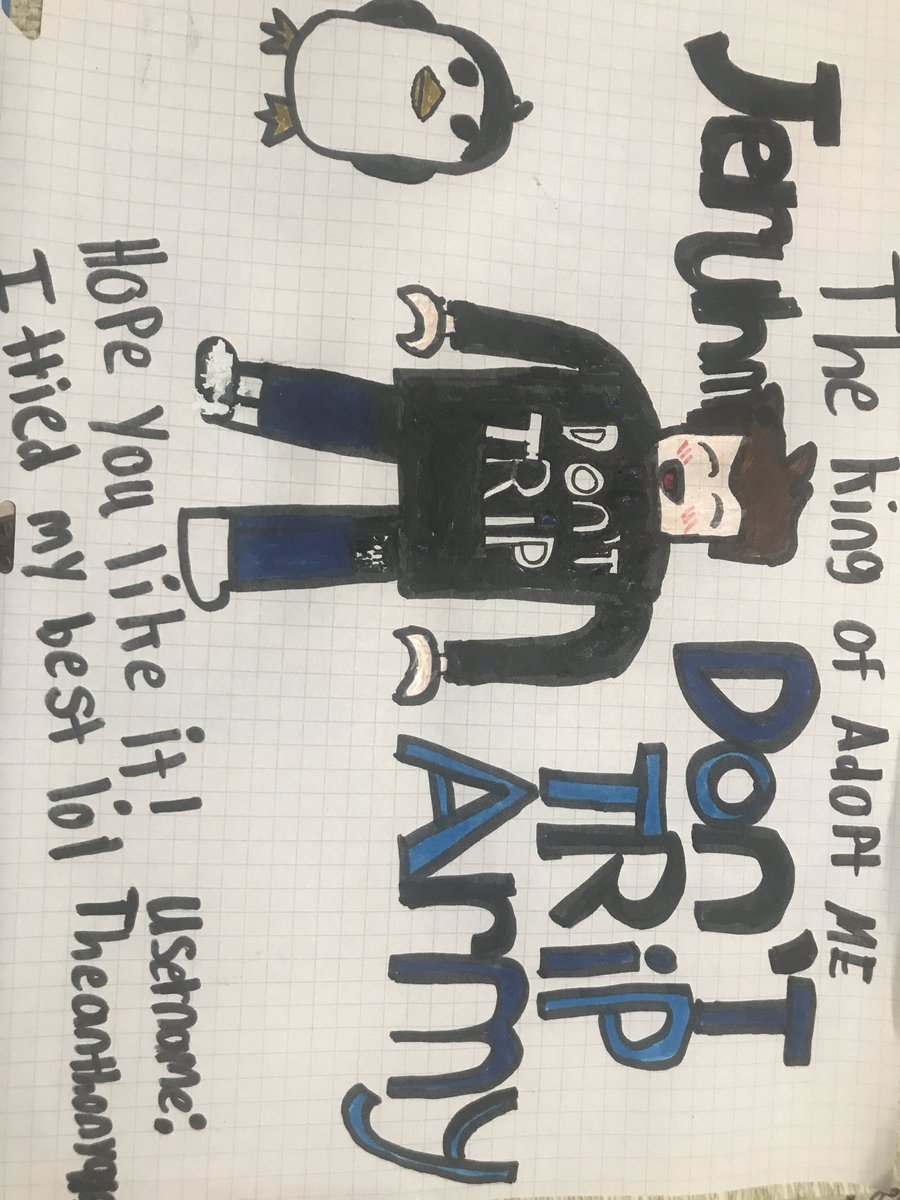 The King of Adopt ME
Jeruhmi
DON'T
TRIP
DON'T
TRIP
Army
Hope You like it!
I tried my best lol
Username: